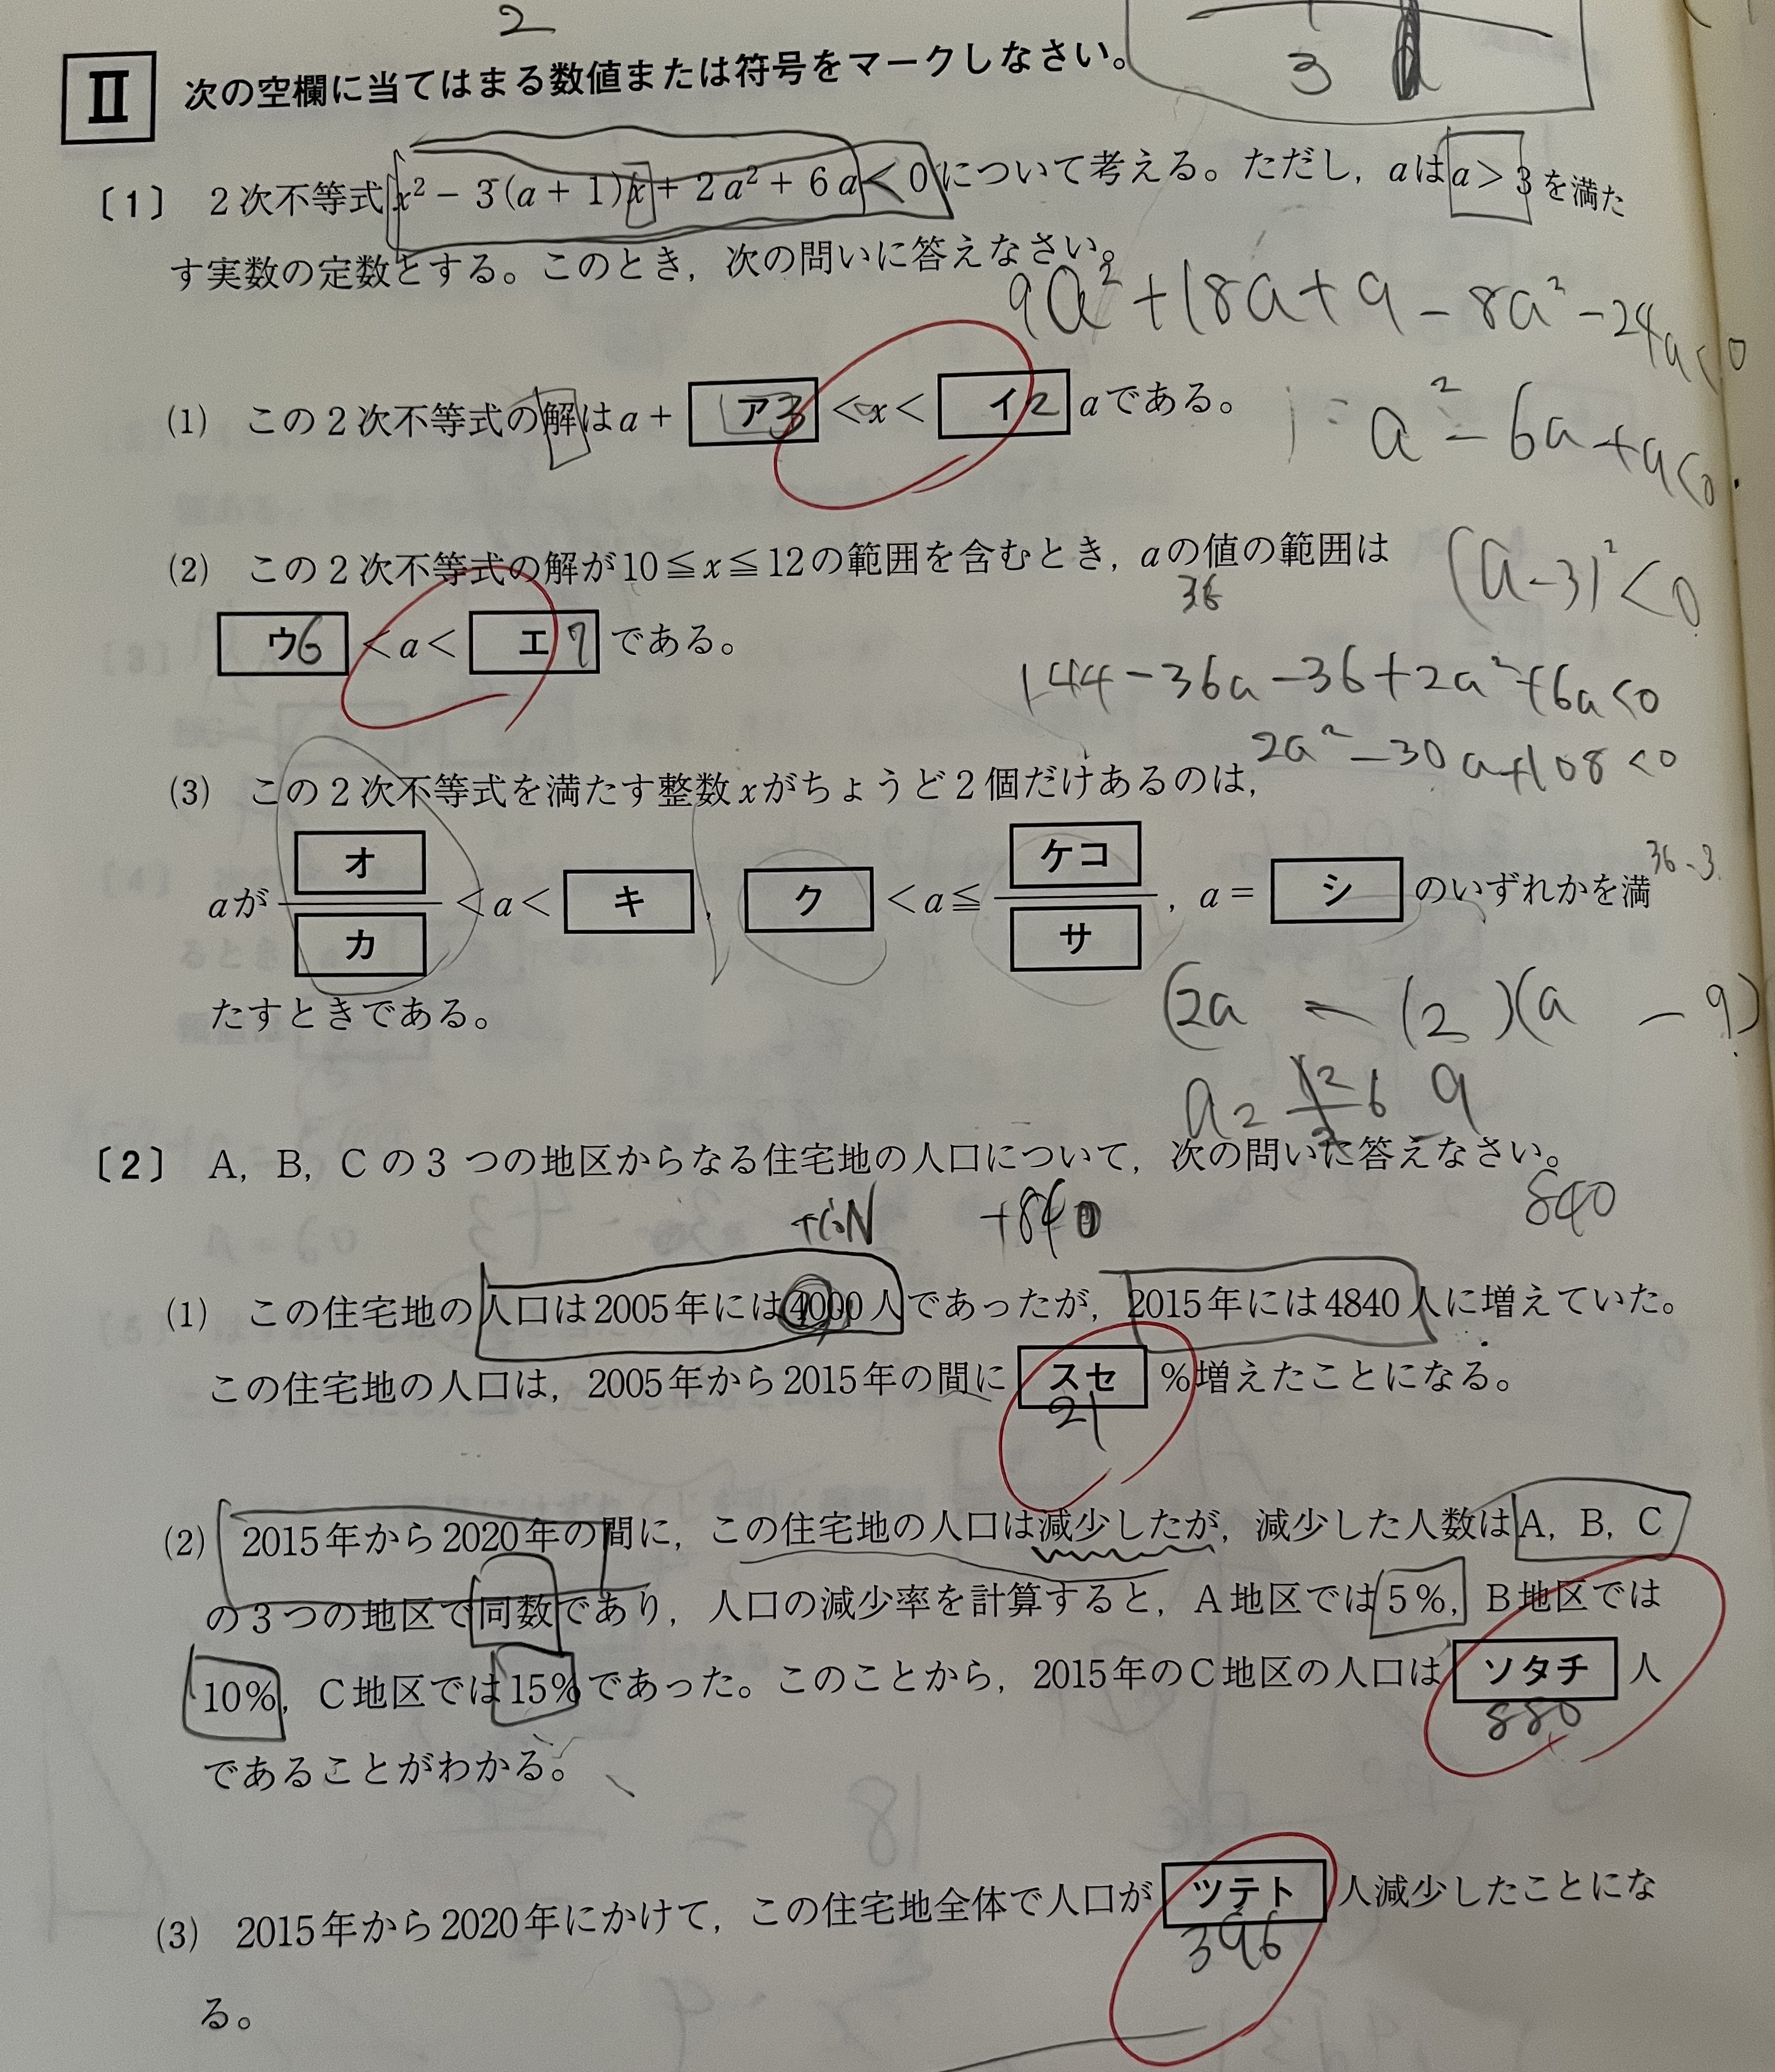 2
3
Ⅱ 次の空欄に当てはまる数値または符号をマークしなさい。
〔1〕 2次不等式 x² − 3(a + 1)x + 2a² + 6a < 0 について考える。ただし，aは a > 3 を満た
す実数の定数とする。このとき，次の問いに答えなさい。
9a² + 18a + 9 − 8a² − 24a < 0
(1) この2次不等式の解は a + ア 3 < x < イ 2 a である。
a² − 6a + 9 < 0
(2) この2次不等式の解が 10 ≦ x ≦ 12 の範囲を含むとき，aの値の範囲は
(a − 3)² < 0
36
ウ 6 < a < エ 7 である。
144 − 36a − 36 + 2a² + 6a < 0
2a² − 30a + 108 < 0
(3) この2次不等式を満たす整数xがちょうど2個だけあるのは，
36 - 3
aが オ/カ < a < キ ， ク < a ≦ ケコ/サ ，a = シ のいずれかを満
たすときである。
(2a − 12)(a − 9)
a = 12/2 6 9
〔2〕 A，B，Cの3つの地区からなる住宅地の人口について，次の問いに答えなさい。
+840
840
(1) この住宅地の人口は2005年には4000人であったが，2015年には4840人に増えていた。
この住宅地の人口は，2005年から2015年の間に スセ ％増えたことになる。
21
(2) 2015年から2020年の間に，この住宅地の人口は減少したが，減少した人数はA，B，C
の3つの地区で同数であり，人口の減少率を計算すると，A地区では5％，B地区では
10％，C地区では15％であった。このことから，2015年のC地区の人口は ソタチ 人
880
であることがわかる。
(3) 2015年から2020年にかけて，この住宅地全体で人口が ツテト 人減少したことにな
396
る。